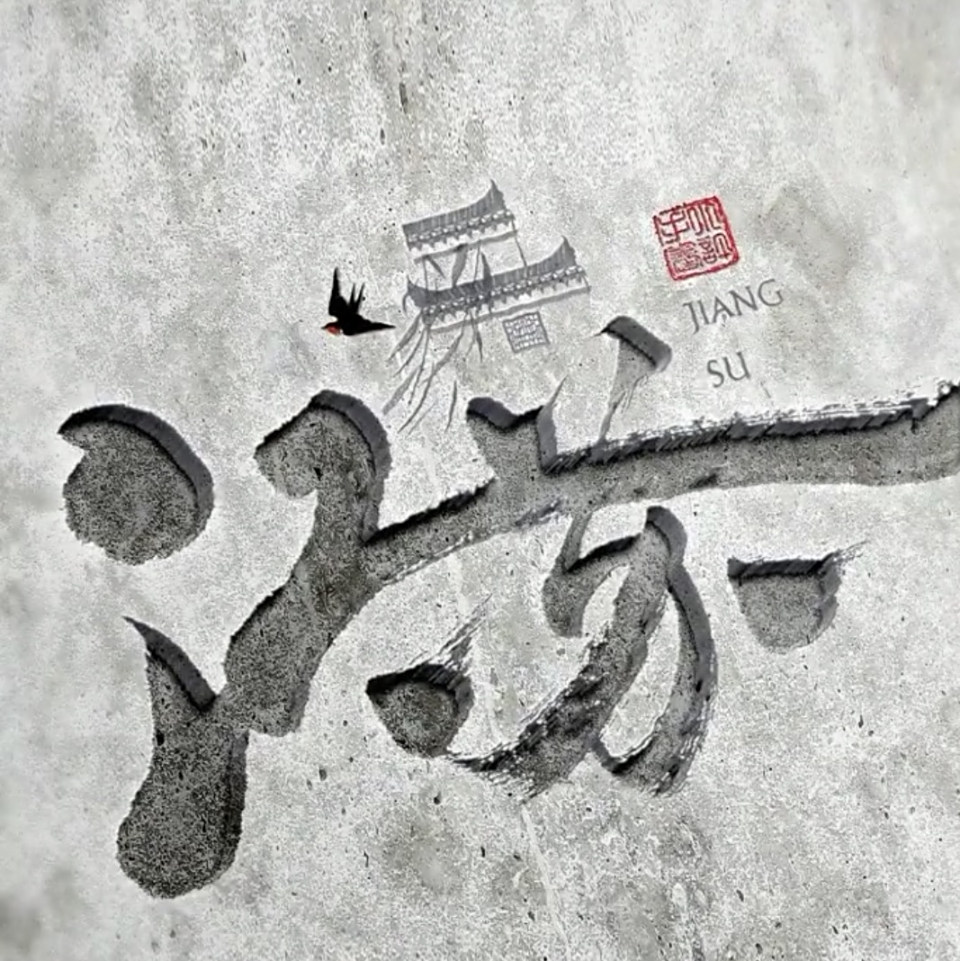 JIANG
SU
江苏